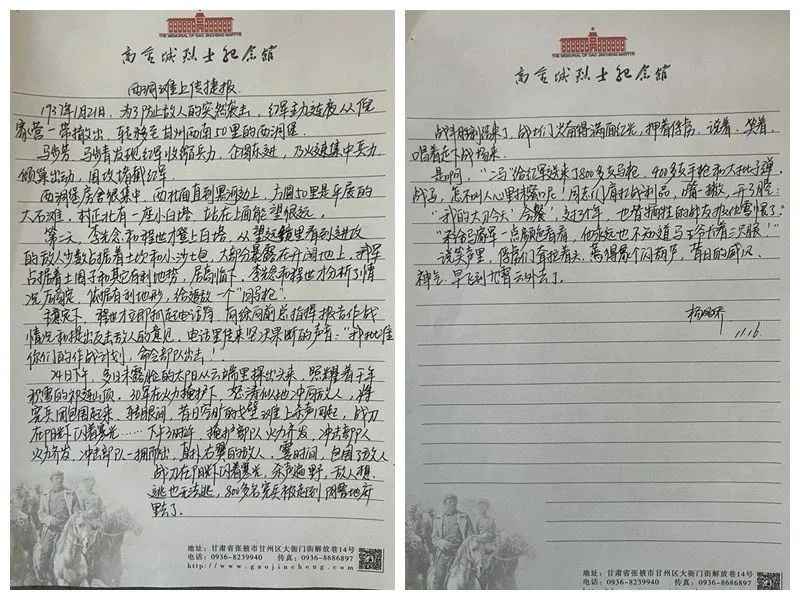 THE MEMORIAL OF GAO JINCHENG MARTYR
高金城烈士纪念馆
西洞滩上传捷报
1937年1月21日，为了防止敌人的突然袭击，红军主力连夜从倪
家营一带撤出，转移至甘州西南 里的西洞堡。
马步芳、马步青发现红军收缩兵力，企图东进，乃火速集中兵力，
倾巢出动，围攻堵截红军。
西洞堡房舍很集中，西北面直到黑河边上，方圆 里是平展的
大石滩，村正北有一座小白塔，站在上面能望很远。
第二天，李先念和程世才登上白塔，从望远镜里看到进攻
的敌人少数占据着土坎和小沙土包，大部分暴露在开阔地上，我军
占据着土围子和其它有利地势，居高临下，李先念和程世才分析了情
况后商定，依据有利地形，给海放一个“回马枪”。
主意定下，程世才立即抓起电话筒，向徐向前总指挥报告作战
情况和提出反击敌人的意见，电话里传来坚决果断的声音：“我批准
你们的作战计划，命令部队出击！”
24日下午，多日未露脸的太阳从云端里探出头来，照耀着千年
积雪的祁连山顶。30军在火力掩护下，怒涛似地冲向敌人，将
宪兵团包围起来，转眼间，昔日空旷的戈壁滩上杀声四起，战刀
在阳光下闪着寒光……下午 时许，掩护部队火力齐发，冲击部队
火力齐发，冲击部队一拥而出，直扑右翼的敌人。霎时间，包围了敌人
战刀在阳光下闪着寒光，杀声遍野，敌人想
逃也无法逃，800多名宪兵被赶到 洼地
里去了。
地址：甘肃省张掖市甘州区大衙门街解放巷14号
电话：0936-8239940 传真：0936-8686897
http://www.gaojincheng.com
THE MEMORIAL OF GAO JINCHENG MARTYR
高金城烈士纪念馆
战斗胜利结束了，战士们兴奋得满面红光，押着俘虏，说着、笑着、
唱着走下战场来。
是啊，“二马”给红军送来了800多支马枪，400多支手枪和大批子弹、
战马，怎不叫人心里热乎呢！同志们肩扛战利品，嘴一撇，开了腔：
“我的大刀今天‘会餐’，支 个，也替牺牲的战友报仇雪恨了！”
“不给马家军一点颜色看看，他永远也不知道马王爷长着三只眼！”
说笑声里，俘虏们耷拉着头，蔫得像个闷葫芦，昔日的威风、
神气，早飞到九霄云外去了。
11.16
地址：甘肃省张掖市甘州区大衙门街解放巷14号
电话：0936-8239940 传真：0936-8686897